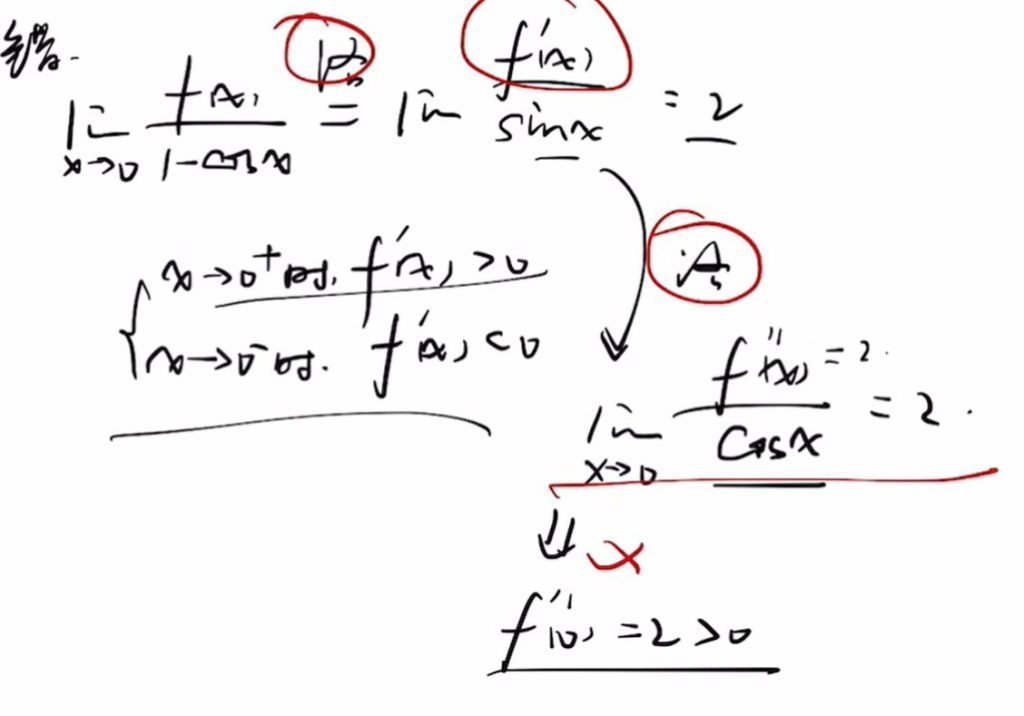 错.
lim x→0 f(x)/(1-cosx) = lim f'(x)/sinx = 2
x→0⁺时. f'(x) > 0
x→0⁻时. f'(x) < 0
lim x→0 f''(x)/cosx = 2.
= 2.
⇓ ×
f''(0) = 2 > 0